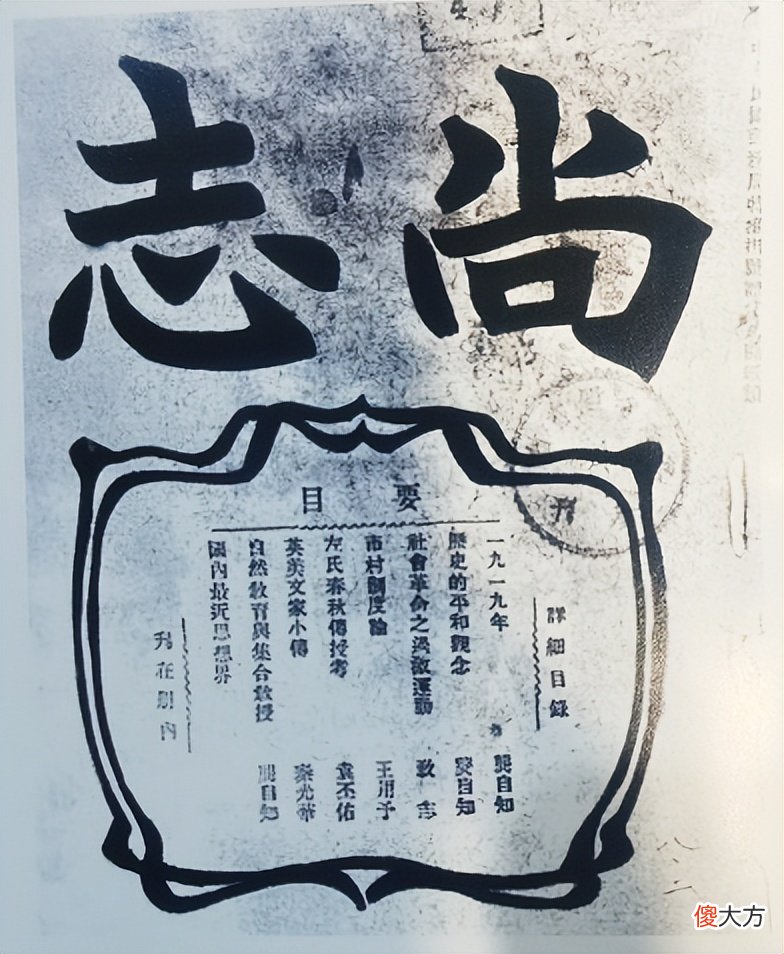 尚志
要目
詳細目錄
一九一九年 龔自知
歷史的平和觀念 龔自知
社會革命之過激運動 志
市村制度論 王用予
左氏春秋傳授考 袁丕佑
英美文家小傳 秦光華
自然教育與集合教授 龔自知
國內最近思想界
在內
傻大方